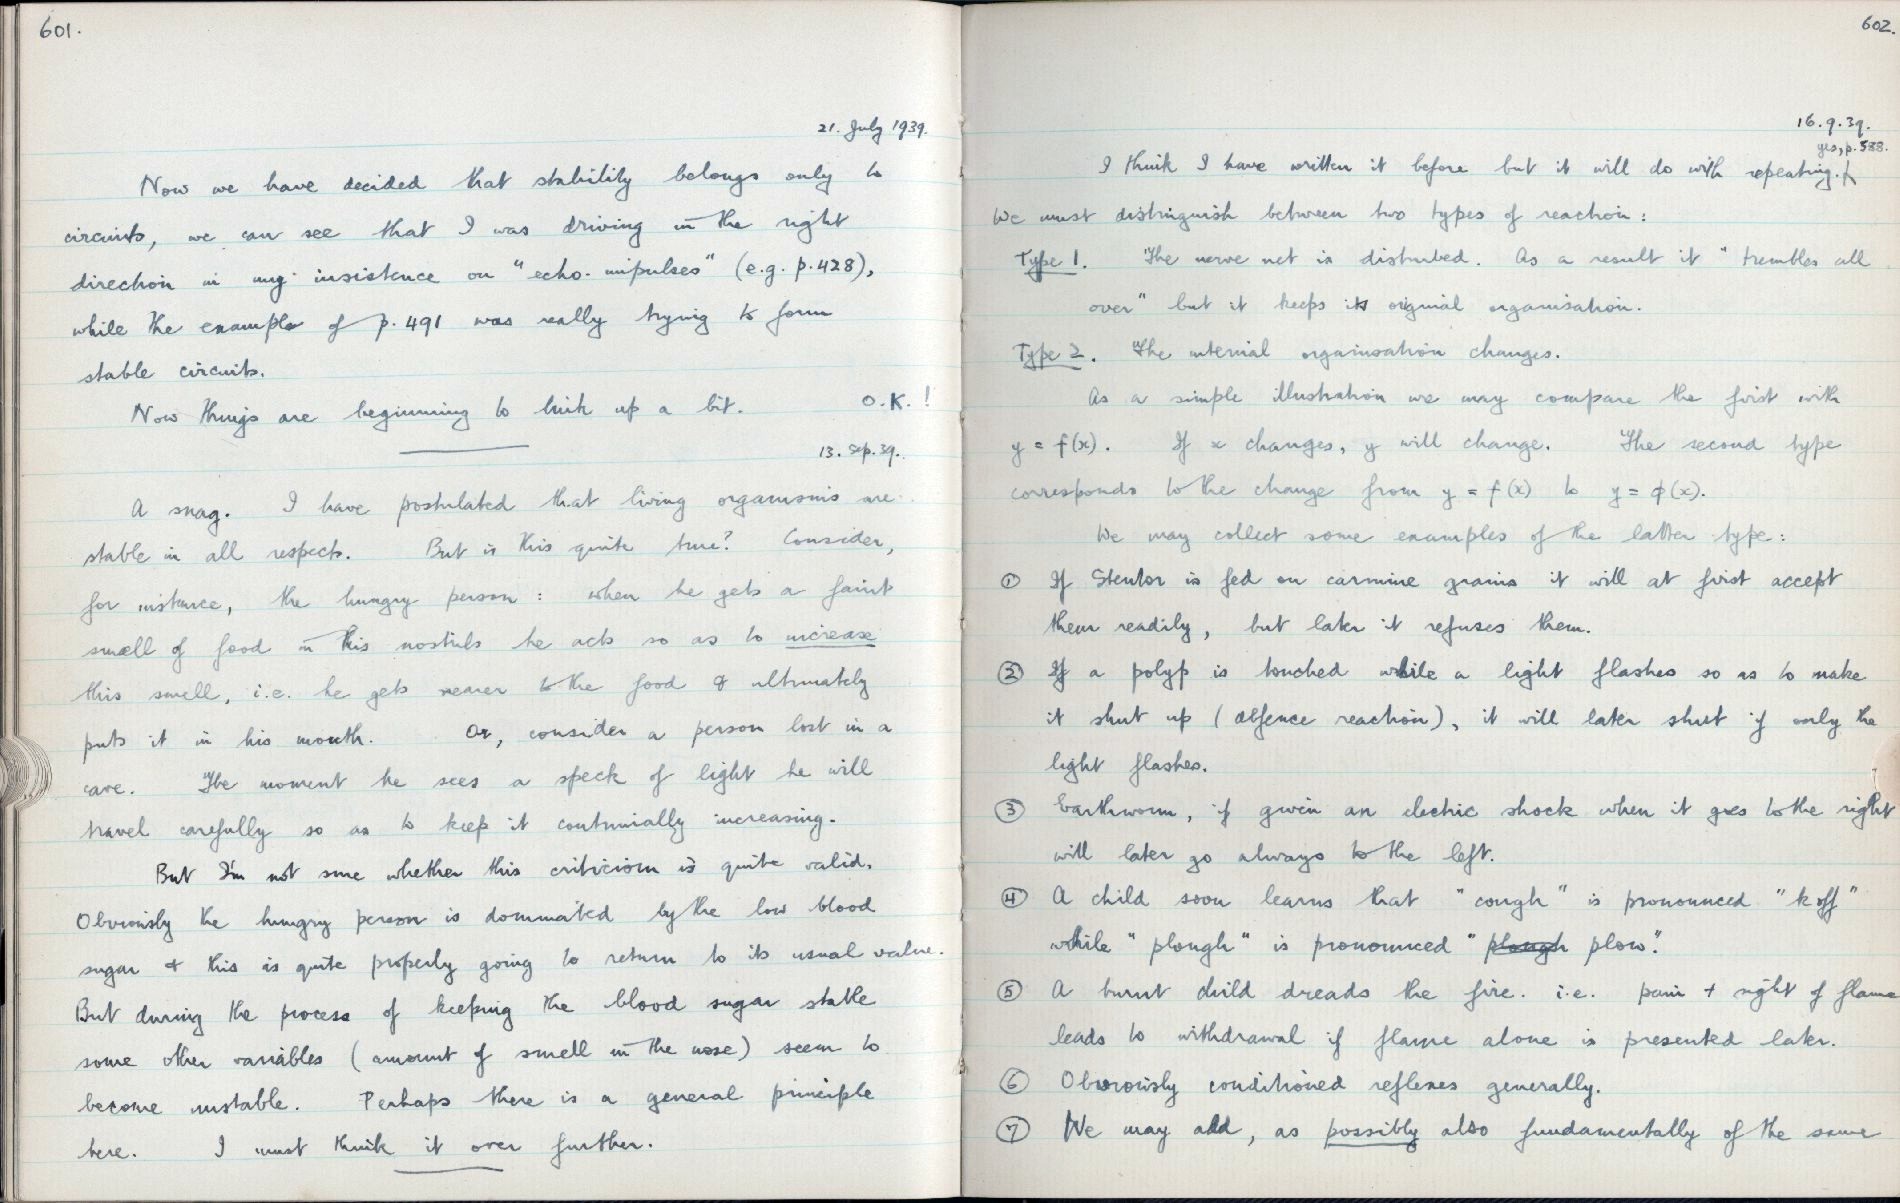 601.
21. July 1939.
Now we have decided that stability belongs only to
circuits, we can see that I was driving in the right
direction in my insistence on "echo-impulses" (e.g. p.428),
while the example of p.491 was really trying to form
stable circuits.
Now things are beginning to link up a bit. O.K.!
13. Sep. 39.
A snag. I have postulated that living organisms are
stable in all respects. But is this quite true? Consider,
for instance, the hungry person : when he gets a faint
smell of food in this nostrils he acts so as to increase
this smell, i.e. he gets nearer to the food & ultimately
puts it in his mouth. Or, consider a person lost in a
cave. The moment he sees a speck of light he will
travel carefully so as to keep it continually increasing.
But I'm not sure whether this criticism is quite valid.
Obviously the hungry person is dominated by the low blood
sugar & this is quite properly going to return to its usual value.
But during the process of keeping the blood sugar stable
some other variables (amount of smell in the nose) seem to
become unstable. Perhaps there is a general principle
here. I must think it over further.
602.
16.9.39.
yes, p.588.
I think I have written it before but it will do with repeating.
We must distinguish between two types of reaction:
Type 1. The nerve net is disturbed. As a result it "trembles all
over" but it keeps its original organisation.
Type 2. The internal organisation changes.
As a simple illustration we may compare the first with
y = f(x). If x changes, y will change. The second type
corresponds to the change from y = f(x) to y = φ(x).
We may collect some examples of the latter type:
① If Stentor is fed on carmine grains it will at first accept
them readily, but later it refuses them.
② If a polyp is touched while a light flashes so as to make
it shut up (defence reaction), it will later shut if only the
light flashes.
③ Earthworm, if given an electric shock when it goes to the right
will later go always to the left.
④ A child soon learns that "cough" is pronounced "koff"
while "plough" is pronounced "plough plow".
⑤ A burnt child dreads the fire. i.e. pain + sight of flame
leads to withdrawal if flame alone is presented later.
⑥ Obviously conditioned reflexes generally.
⑦ We may add, as possibly also fundamentally of the same